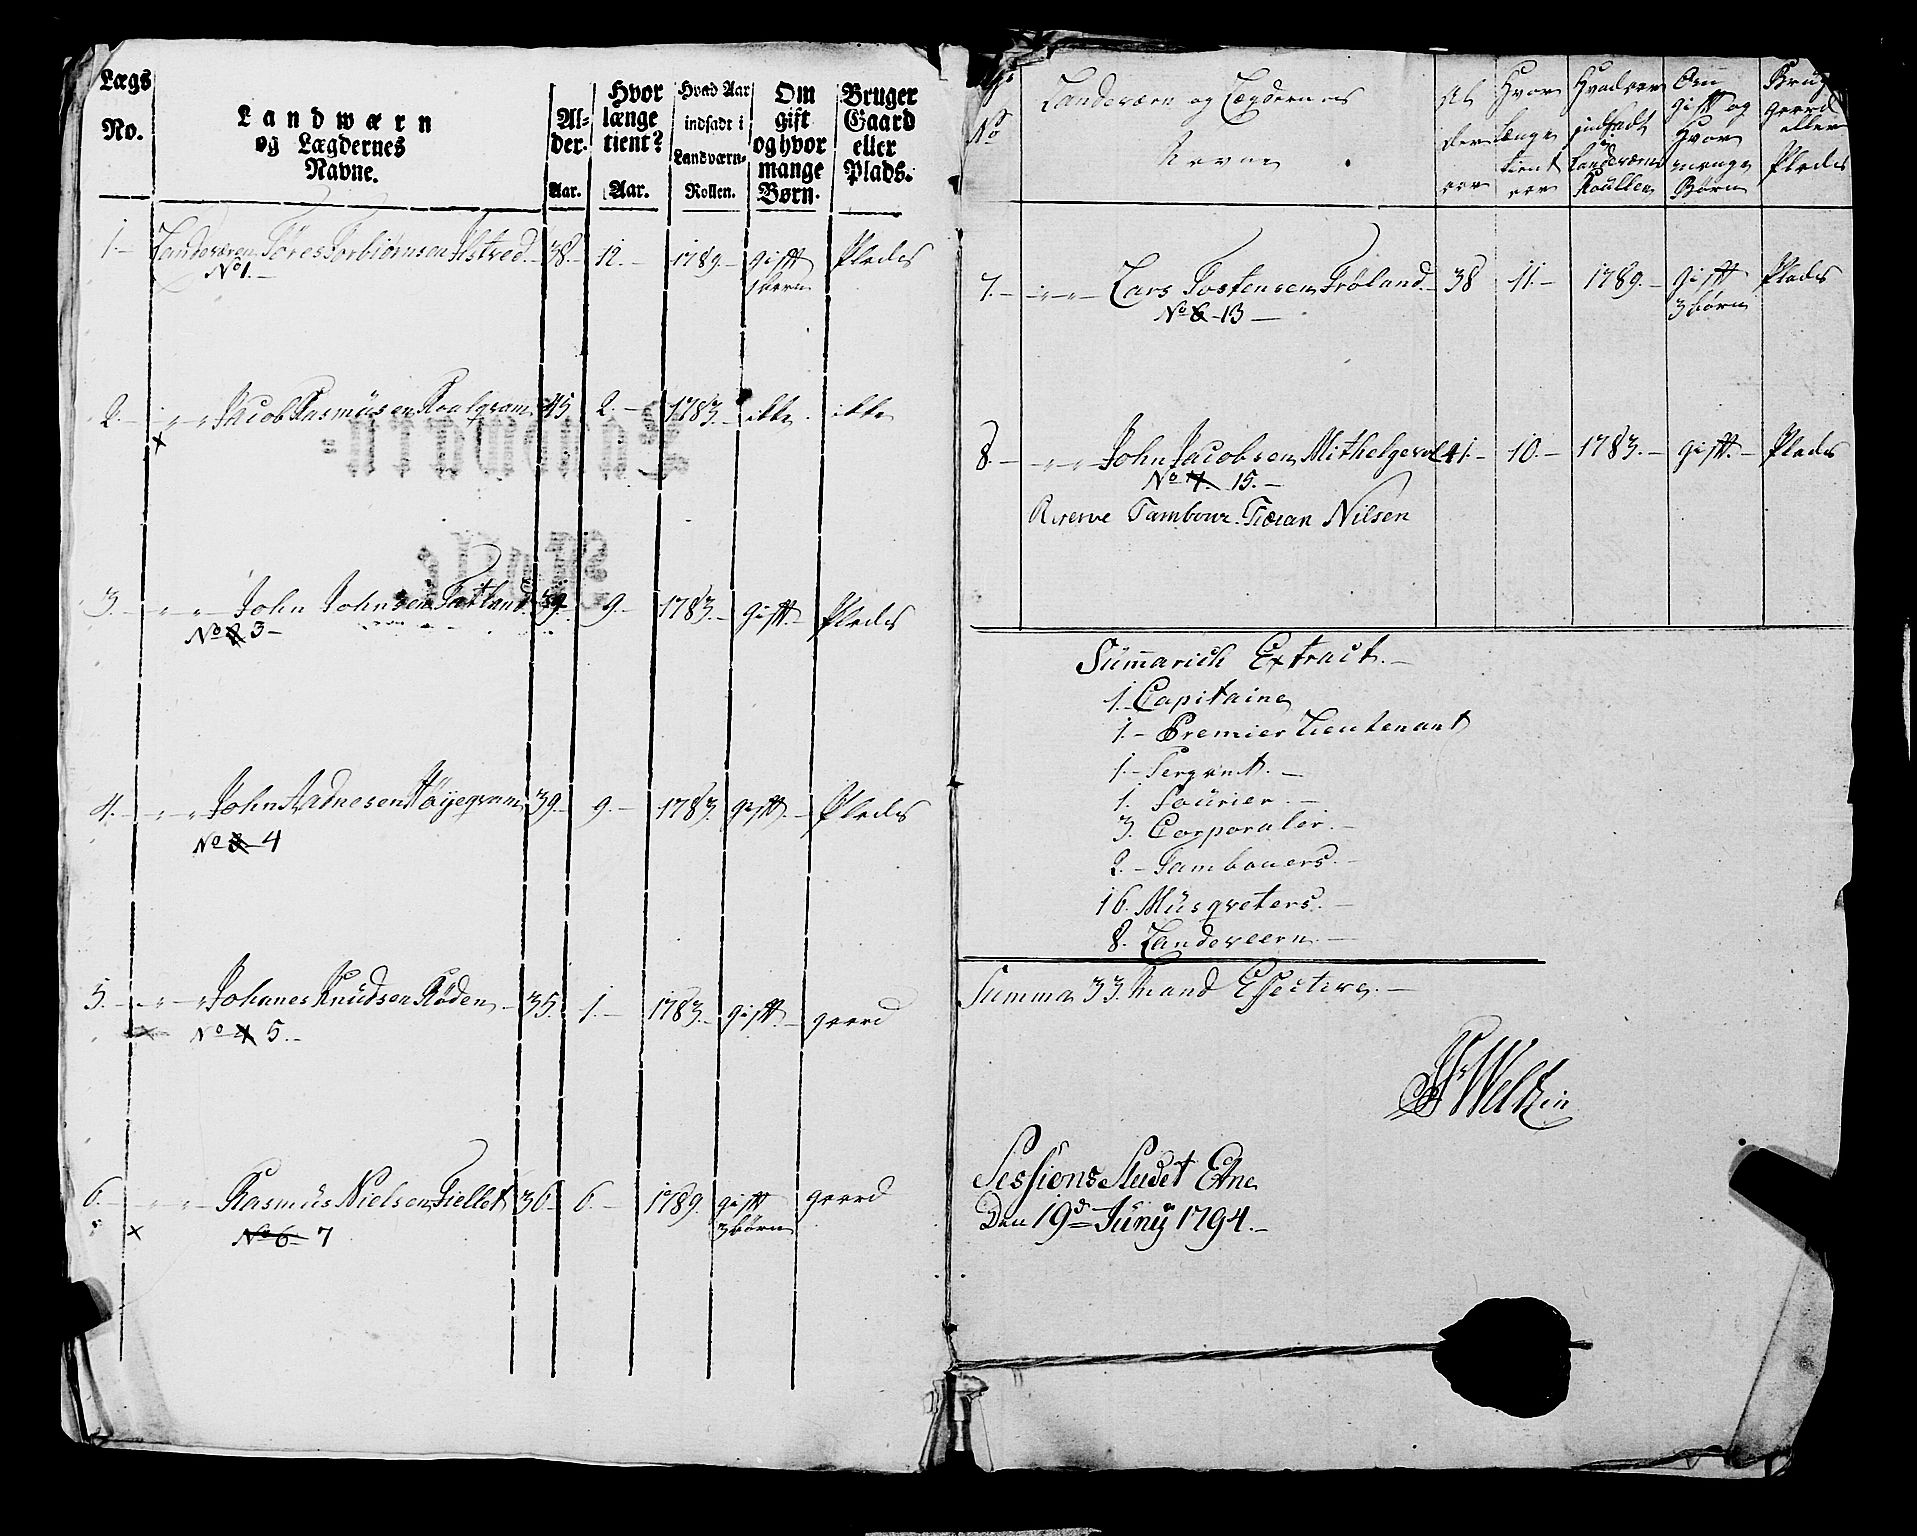 Lægs No. Landwærn og Lægdernes Navne. Al- der. Aar. Hvor længe tient? Aar. Hvad Aar indsadt i Landværn- Rollen. Om gift og hvor mange Børn. Bruger Gaard eller Plads.
1. Landeværn Töres Torbiörnsen 38. 12. 1789. gift Plads
No 1.
2. " " Jacob Rasmüsen 45 2. 1783. ikke ikke
x
3. " " John Johnsen Tatland 39. 9. 1783. gift. Plads
No 2 3
4. " " John Aadnesen 39. 9. 1783. gift. Plads
No 3 4
5. " " Johanes Knüdsen Röden 35. 1. 1783. gift. gaard
x No 4 5.
6. " " Rasmüs Nielsen Fiellet 36 6. 1789. gift gaard
x No 6 7 3 börn
No Landeværn og Lægdernes Navne Al der aar Hvor længe tient aar Hvad aar indsadt i Landeværns Roullen Om gift og Hvor mange Börn Brug gaard eller Plads
7. " " Lars Tostensen Fröland 38 11. 1789. gift Plads
No 6 13 3 börn
8. " " John Jacobsen 41. 10. 1783. gift. Plads
No 7. 15.
Reserve Tambour Nilsen
Sümarich Extract.
1. Capitaine
1. Premier Lieutenant
1. Sergent.
1. Fourier.
3. Corporaler.
2. Tambouers.
16. Müsqveters.
8. Landeveern.
Summa 33. Mand Efective.
Weltzin
Sessions Stedet Etne
Den 19de Junij 1794.